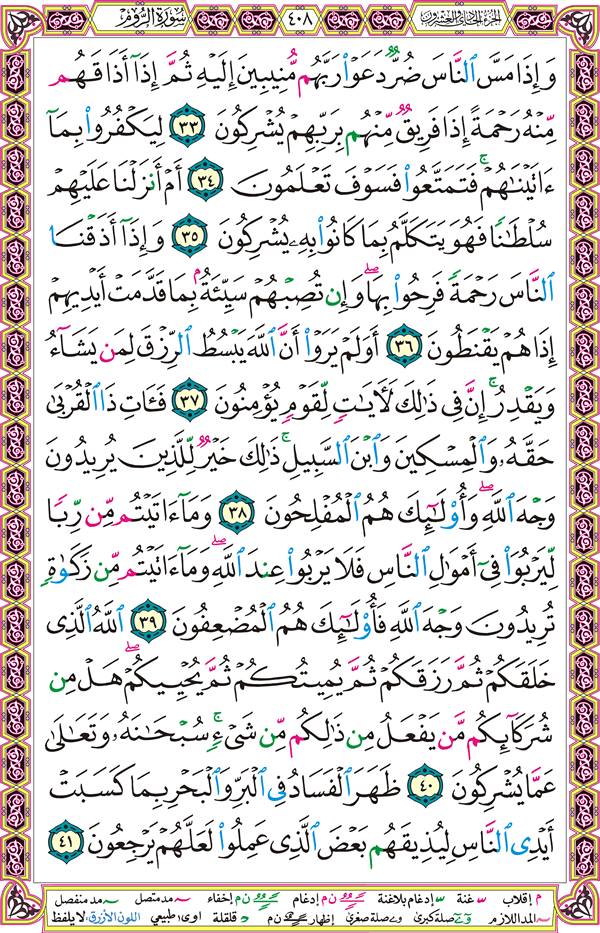 سُورَةُ الرُّومِ ٤٠٨ الجزء الحادي والعشرون
وَإِذَا مَسَّ النَّاسَ ضُرٌّ دَعَوْا۟ رَبَّهُم مُّنِيبِينَ إِلَيْهِ ثُمَّ إِذَآ أَذَاقَهُم
مِّنْهُ رَحْمَةً إِذَا فَرِيقٌ مِّنْهُم بِرَبِّهِمْ يُشْرِكُونَ ٣٣ لِيَكْفُرُوا۟ بِمَآ
ءَاتَيْنَٰهُمْ ۚ فَتَمَتَّعُوا۟ فَسَوْفَ تَعْلَمُونَ ٣٤ أَمْ أَنزَلْنَا عَلَيْهِمْ
سُلْطَٰنًا فَهُوَ يَتَكَلَّمُ بِمَا كَانُوا۟ بِهِۦ يُشْرِكُونَ ٣٥ وَإِذَآ أَذَقْنَا
النَّاسَ رَحْمَةً فَرِحُوا۟ بِهَا ۖ وَإِن تُصِبْهُمْ سَيِّئَةٌۢ بِمَا قَدَّمَتْ أَيْدِيهِمْ
إِذَا هُمْ يَقْنَطُونَ ٣٦ أَوَلَمْ يَرَوْا۟ أَنَّ اللَّهَ يَبْسُطُ الرِّزْقَ لِمَن يَشَآءُ
وَيَقْدِرُ ۚ إِنَّ فِى ذَٰلِكَ لَءَايَٰتٍ لِّقَوْمٍ يُؤْمِنُونَ ٣٧ فَـَٔاتِ ذَا الْقُرْبَىٰ
حَقَّهُۥ وَالْمِسْكِينَ وَابْنَ السَّبِيلِ ۚ ذَٰلِكَ خَيْرٌ لِّلَّذِينَ يُرِيدُونَ
وَجْهَ اللَّهِ ۖ وَأُو۟لَٰٓئِكَ هُمُ الْمُفْلِحُونَ ٣٨ وَمَآ ءَاتَيْتُم مِّن رِّبًا
لِّيَرْبُوَا۟ فِىٓ أَمْوَٰلِ النَّاسِ فَلَا يَرْبُوا۟ عِندَ اللَّهِ ۖ وَمَآ ءَاتَيْتُم مِّن زَكَوٰةٍ
تُرِيدُونَ وَجْهَ اللَّهِ فَأُو۟لَٰٓئِكَ هُمُ الْمُضْعِفُونَ ٣٩ اللَّهُ الَّذِى
خَلَقَكُمْ ثُمَّ رَزَقَكُمْ ثُمَّ يُمِيتُكُمْ ثُمَّ يُحْيِيكُمْ ۖ هَلْ مِن
شُرَكَآئِكُم مَّن يَفْعَلُ مِن ذَٰلِكُم مِّن شَىْءٍ ۚ سُبْحَٰنَهُۥ وَتَعَٰلَىٰ
عَمَّا يُشْرِكُونَ ٤٠ ظَهَرَ الْفَسَادُ فِى الْبَرِّ وَالْبَحْرِ بِمَا كَسَبَتْ
أَيْدِى النَّاسِ لِيُذِيقَهُم بَعْضَ الَّذِى عَمِلُوا۟ لَعَلَّهُمْ يَرْجِعُونَ ٤١
م إقلاب غنة إدغام بلاغنة ن م إدغام ن م إخفاء مد متصل مد منفصل
المد اللازم صلة كبرى صلة صغرى إظهار ن م قلقلة اوى طبيعي اللون الأزرق: لا يلفظ